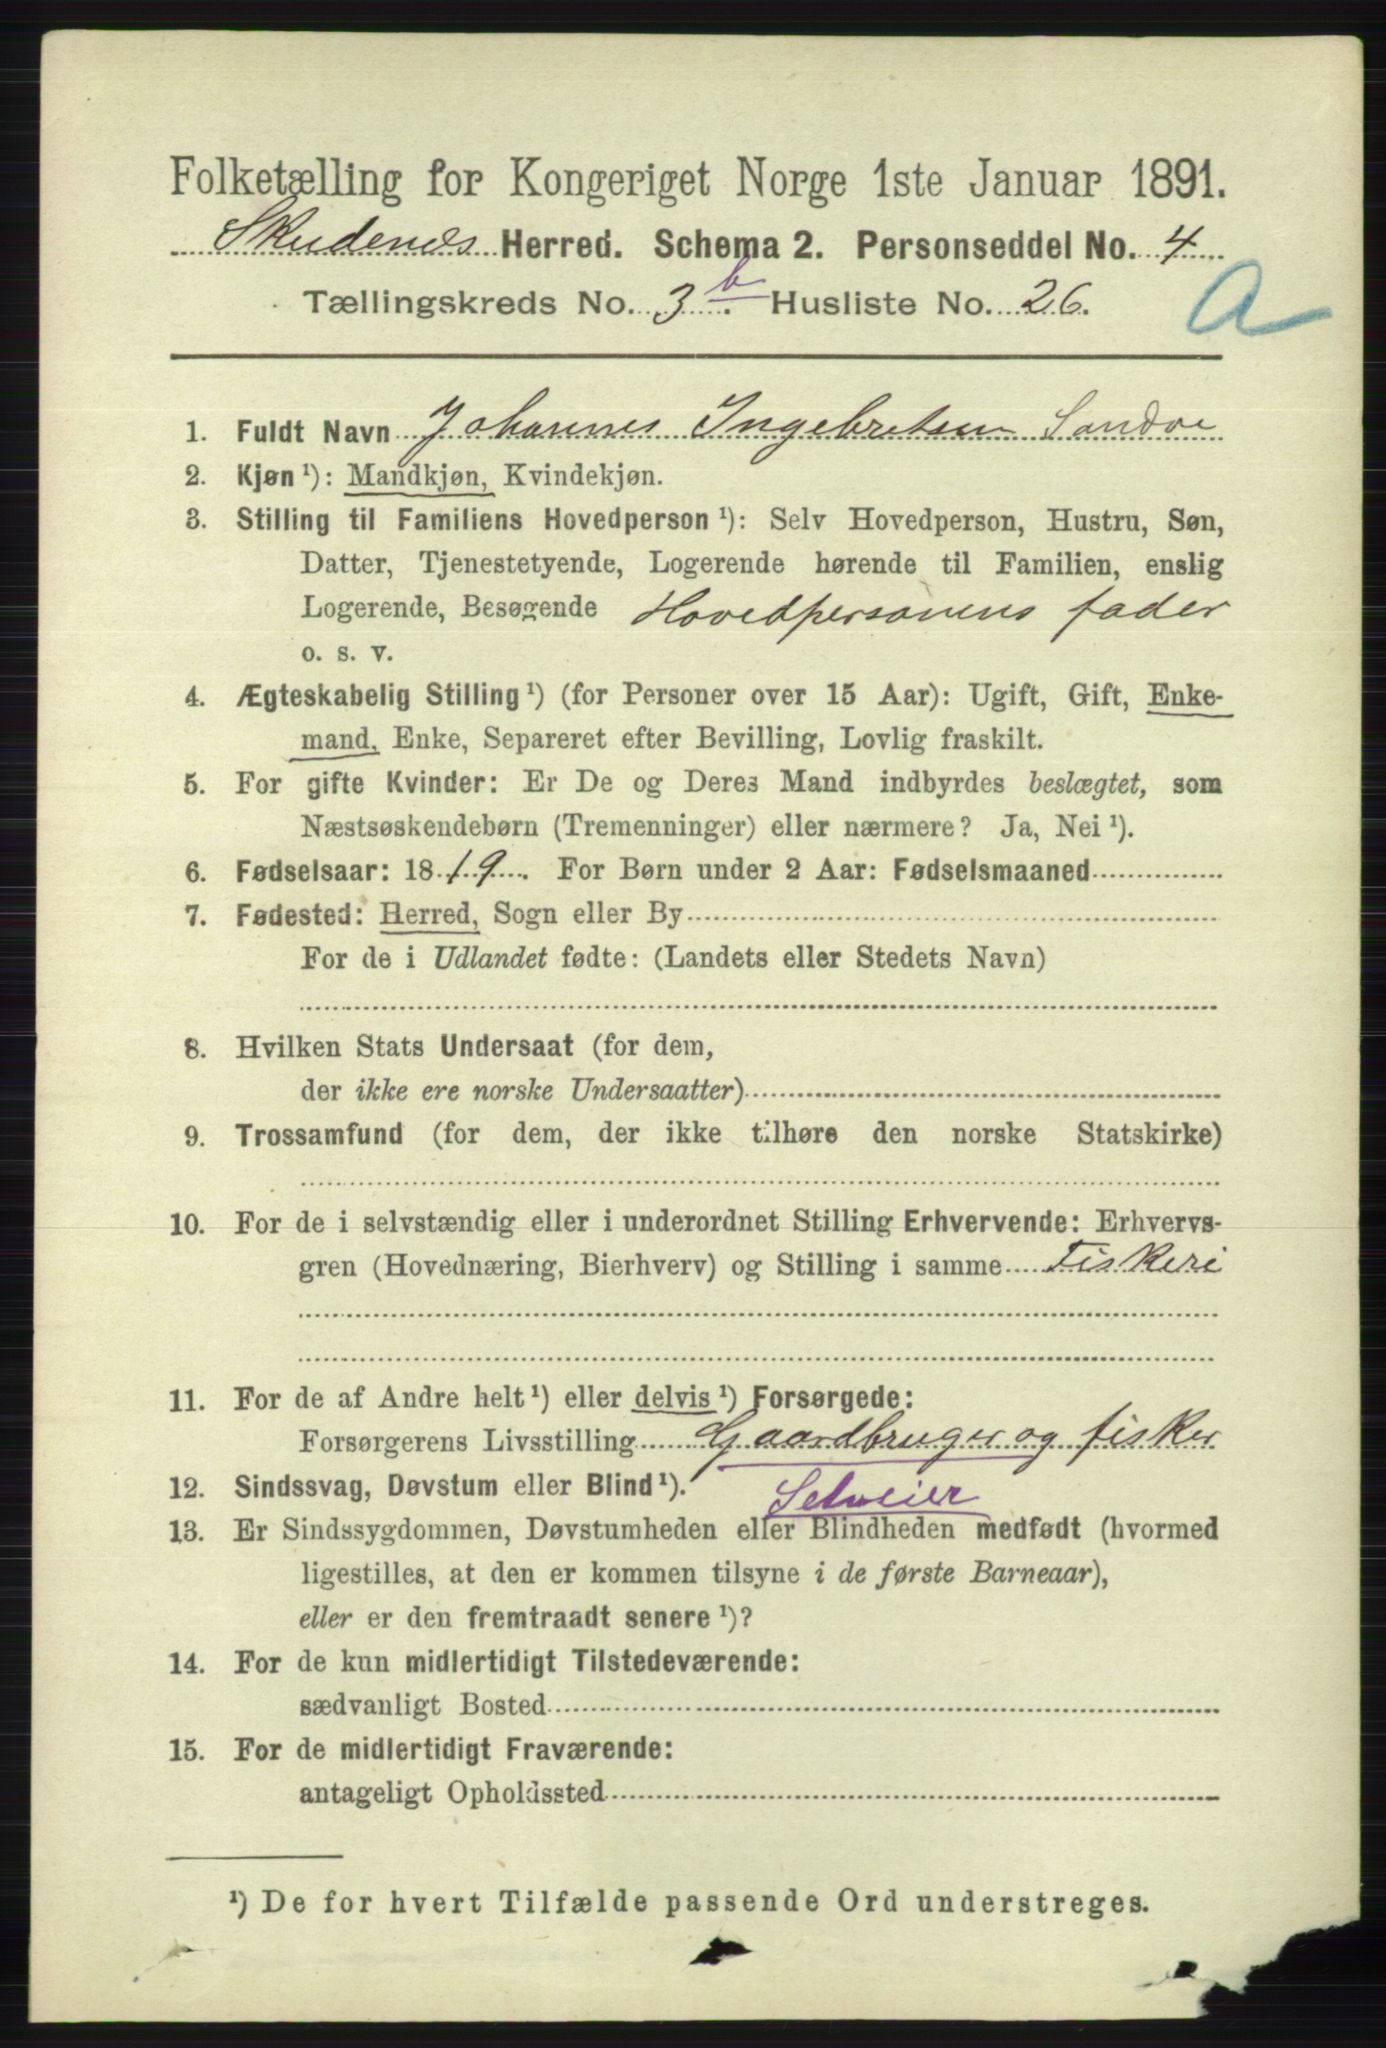 Folketælling for Kongeriget Norge 1ste Januar 1891.
Skudenes Herred. Schema 2. Personseddel No. 4
Tællingskreds No. 3 b. Husliste No. 26.
A
1. Fuldt Navn Johannes Ingebretsen Sandve
2. Kjøn ¹): Mandkjøn, Kvindekjøn.
3. Stilling til Familiens Hovedperson ¹): Selv Hovedperson, Hustru, Søn,
Datter, Tjenestetyende, Logerende hørende til Familien, enslig
Logerende, Besøgende Hovedpersonens fader
o. s. v.
4. Ægteskabelig Stilling ¹) (for Personer over 15 Aar): Ugift, Gift, Enke-
mand, Enke, Separeret efter Bevilling, Lovlig fraskilt.
5. For gifte Kvinder: Er De og Deres Mand indbyrdes beslægtet, som
Næstsøskendebørn (Tremenninger) eller nærmere? Ja, Nei ¹).
6. Fødselsaar: 1819. For Børn under 2 Aar: Fødselsmaaned
7. Fødested: Herred, Sogn eller By
For de i Udlandet fødte: (Landets eller Stedets Navn)
8. Hvilken Stats Undersaat (for dem,
der ikke ere norske Undersaatter)
9. Trossamfund (for dem, der ikke tilhøre den norske Statskirke)
10. For de i selvstændig eller i underordnet Stilling Erhvervende: Erhvervs-
gren (Hovednæring, Bierhverv) og Stilling i samme Fiskeri
11. For de af Andre helt ¹) eller delvis ¹) Forsørgede:
Forsørgerens Livsstilling Gaardbruger og fisker
12. Sindssvag, Døvstum eller Blind ¹). Selveier
13. Er Sindssygdommen, Døvstumheden eller Blindheden medfødt (hvormed
ligestilles, at den er kommen tilsyne i de første Barneaar),
eller er den fremtraadt senere ¹)?
14. For de kun midlertidigt Tilstedeværende:
sædvanligt Bosted
15. For de midlertidigt Fraværende:
antageligt Opholdssted
¹) De for hvert Tilfælde passende Ord understreges.